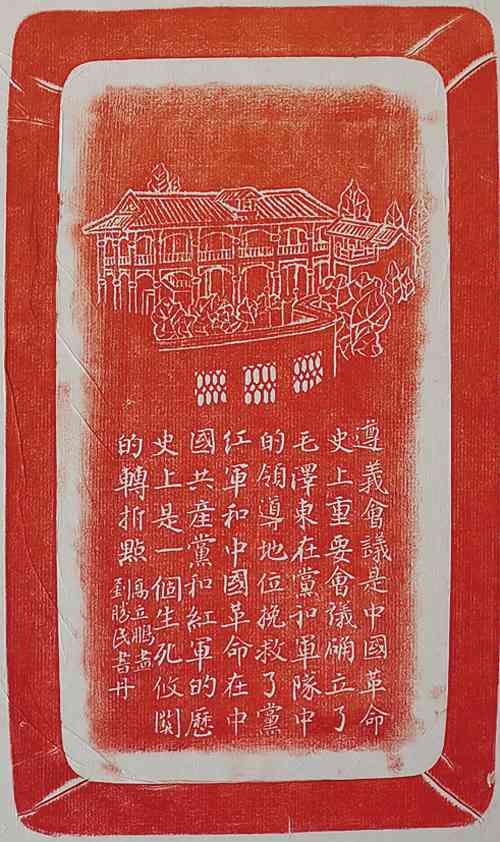 遵義會議是中國革命
史上重要會議确立了
毛澤東在黨和軍隊中
的領導地位挽救了黨
紅軍和中國革命在中
國共產黨和紅軍的歷
史上是一個生死攸関
的轉折點
高立鵬畫
劉勝民書丹